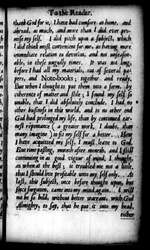 To the Reader.
thank God for it, I have had comfort at home, and
abroad, as much, and more than I did ever pro-
mise my self. I did pitch upon a subject, which
I did think most convenient for me, as having more
immediate relation to devotion, and not unseason-
able, in these unruly times. It was not long,
before I had all my materials, out of several pa-
pers, and Note-books; together and ready.
But when I thought to put them into a form, by
coherence of matter and stile; I found my self so
unable, that I did absolutely conclude, I had no
other business in this world, and to no other end
God had prolonged my life, than by continued ear-
nest repentance (a greater work, I doubt, than
many imagine) to fit my self for a better.
I have acquitted my self, I must leave to God.
But some months after and I still
continuing in a good vigour of mind, I thought,
as when at the best; it troubled me not a little,
that I should live profitable unto my self only. At
last, this subject, once before thought upon, but
since forgotten, came into my mind again. I will
not be so bold, without better warrant, with God
almighty, to say, that he put it into my head,
either